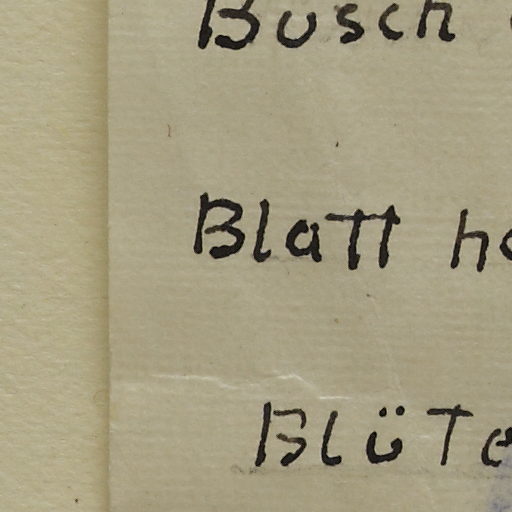 Busch
Blatt
Blüte